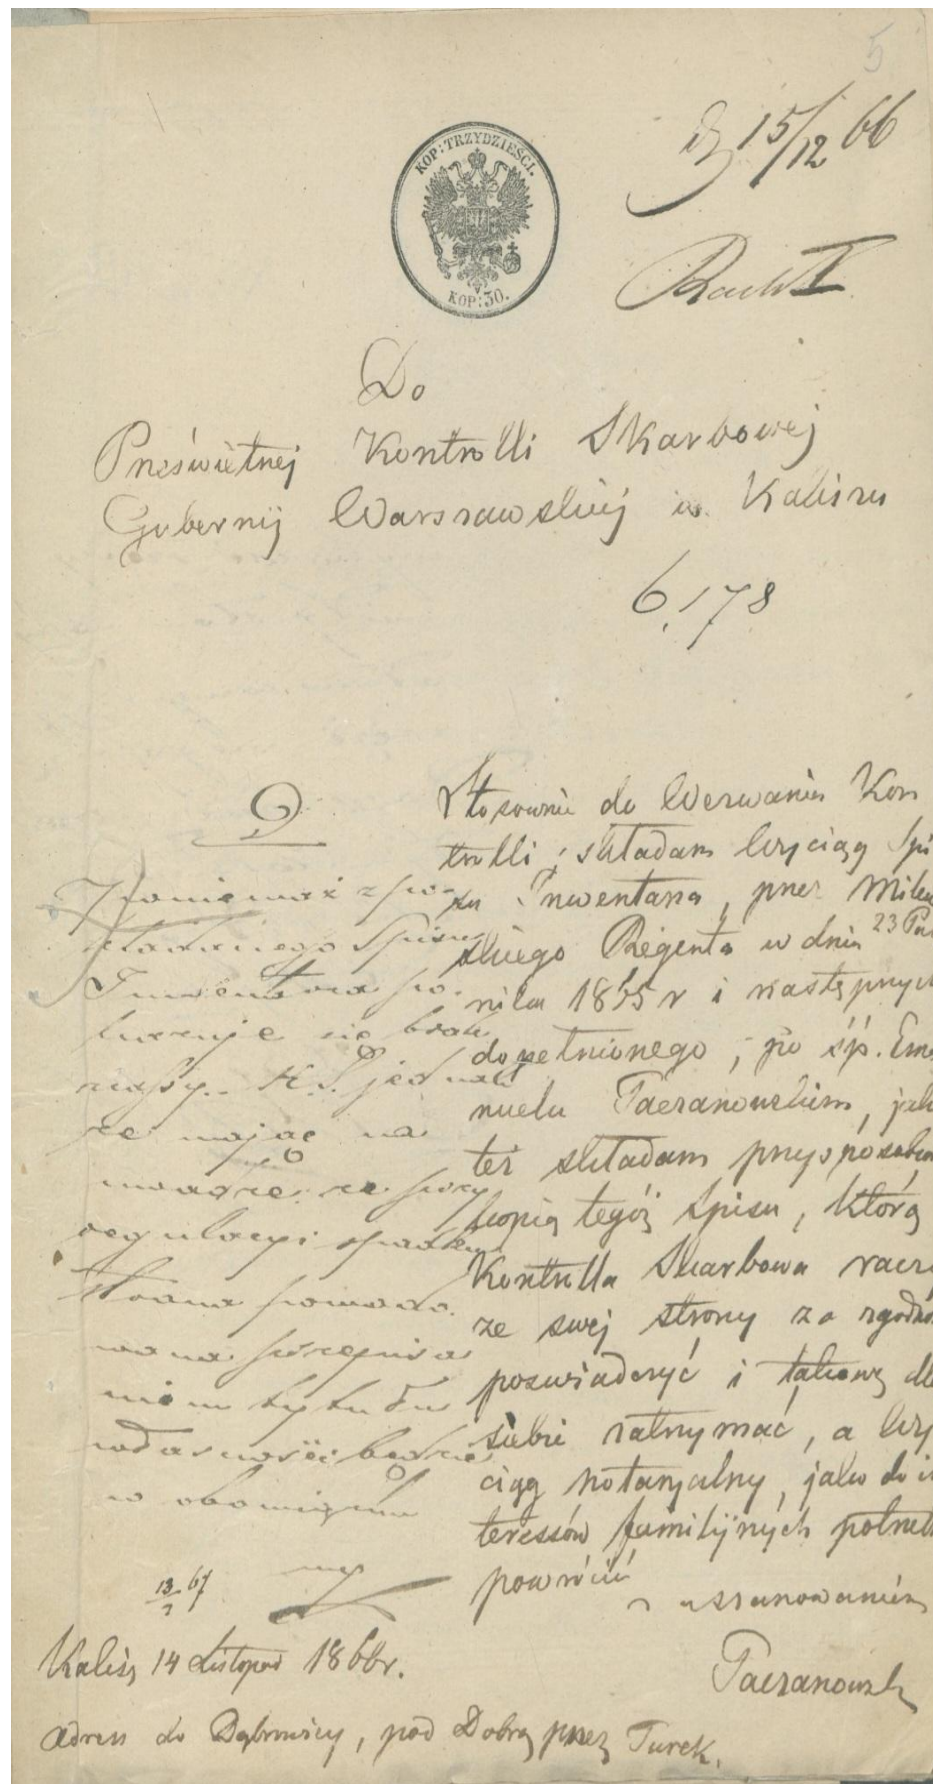 5
15/12 66
KOP: TRZYDZIEŚCI.
KOP: 30.
Do
Prześwietnej Kontrolli Skarbowej
Gubernij Warszawskiej w Kaliszu
6,178
Stosownie do Wezwania Kon
trolli, składam Wyciąg Spi
su Inwentarza, przez Milew
skiego Regenta w dniu 23 Paz
nika 1855 r i następnych
dopełnionego, po śp. Ema
nuelu Taczanowskim, jako
też składam przysposobioną
kopią tegóż Spisu, którą
Kontrolla Skarbowa raczy
ze swej strony za zgodno
poswiadczyć i takową dla
siebie zatrzymać, a Wy
ciąg notaryalny, jako do in
teressów familijnych potrzeb
powrócić
z uszanowaniem
Taczanowski
Ponieważ z po
Spisu
Inwentarza po
się brak
jednak
że mając na
uwadze, że przy
regulacyi spadku
Strona
przepisa
niem tytułu
własności będzie
w obowiązku
13/7 67
Kalisz 14 Listopad 1866r.
Adress do Dąbrowicy, pod Dobrą przez Turek.